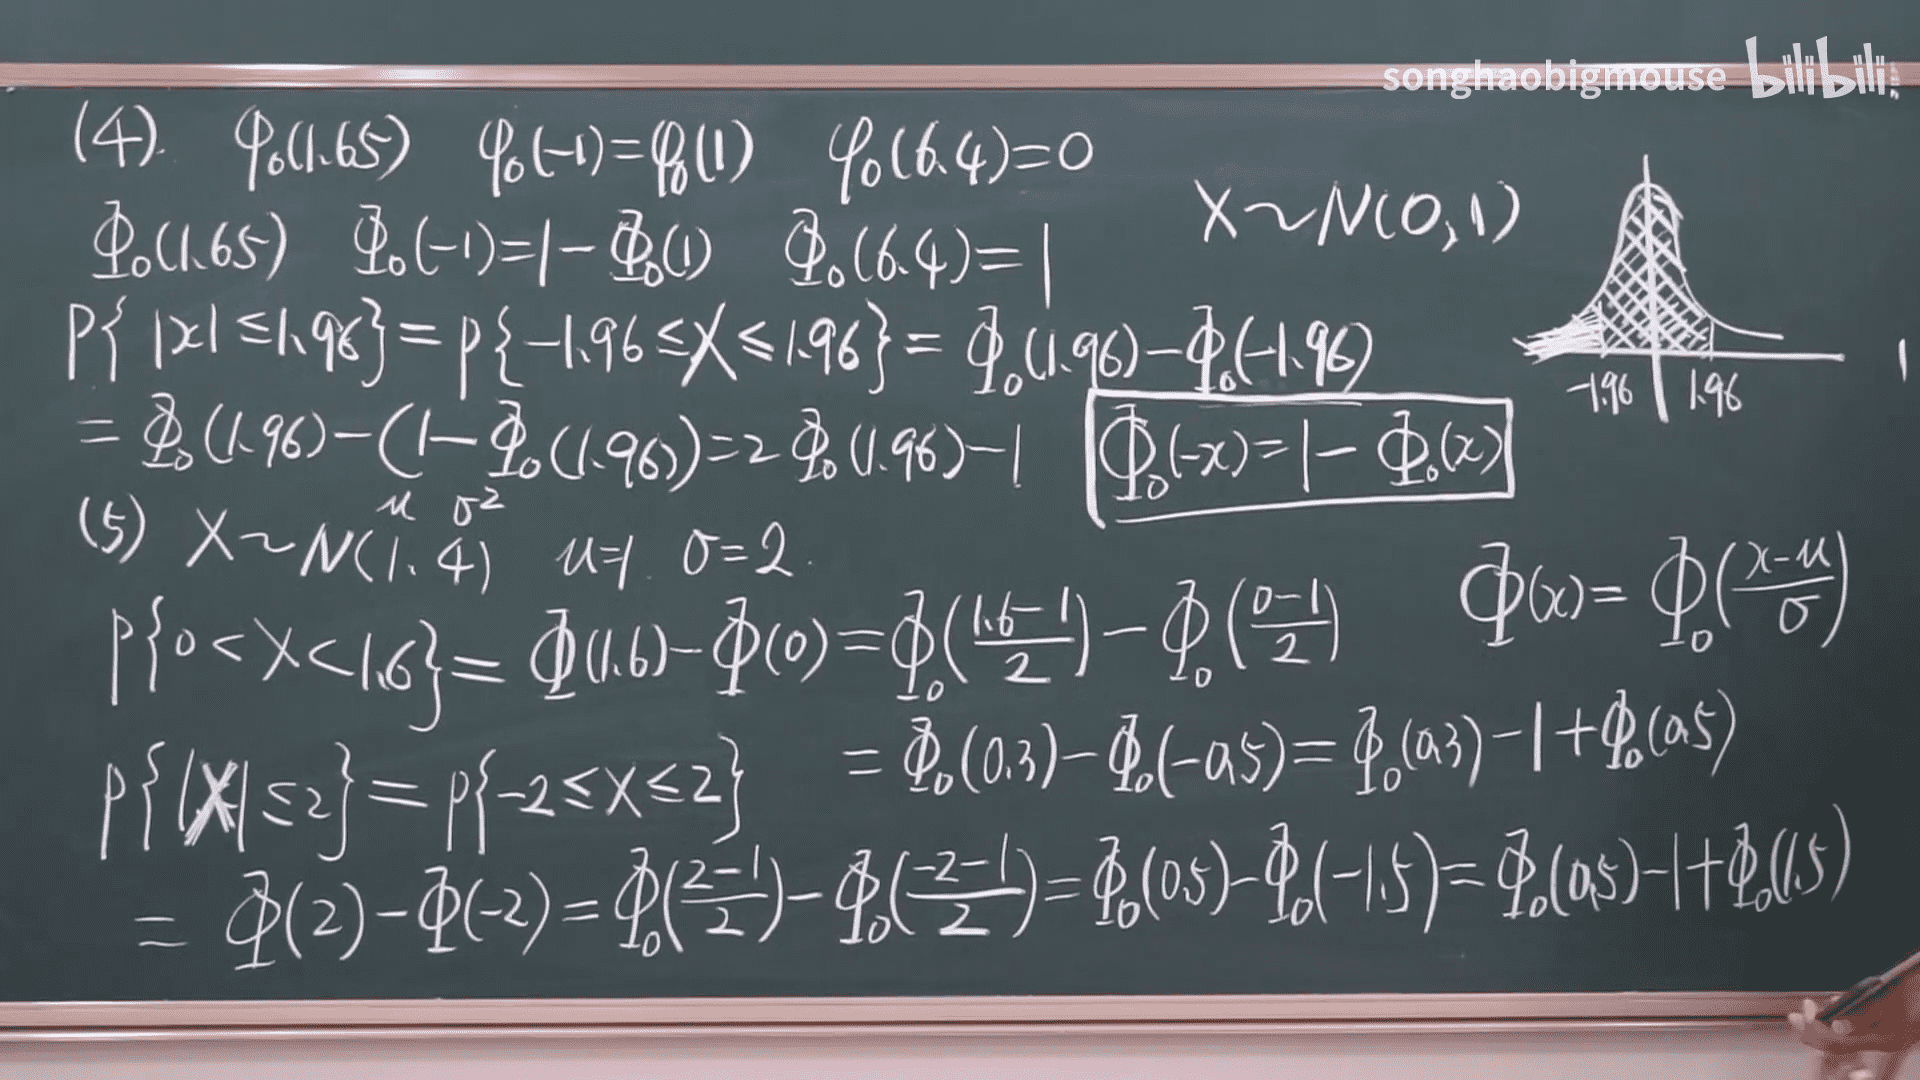 songhaobigmouse bilibili
(4). φ₀(1.65) φ₀(-1)=φ₀(1) φ₀(6.4)=0
Φ₀(1.65) Φ₀(-1)=1-Φ₀(1) Φ₀(6.4)=1
X~N(0,1)
P{|x|≤1.96}=P{-1.96≤X≤1.96}=Φ₀(1.96)-Φ₀(-1.96)
-1.96 1.96
=Φ₀(1.96)-(1-Φ₀(1.96))=2Φ₀(1.96)-1
Φ₀(-x)=1-Φ₀(x)
μ σ²
(5) X~N(1.4) μ=1. σ=2.
Φ(x)=Φ₀((x-μ)/σ)
P{0<X<1.6}=Φ(1.6)-Φ(0)=Φ₀((1.6-1)/2)-Φ₀((0-1)/2)
=Φ₀(0.3)-Φ₀(-0.5)=Φ₀(0.3)-1+Φ₀(0.5)
P{|X|≤2}=P{-2≤X≤2}
=Φ(2)-Φ(-2)=Φ₀((2-1)/2)-Φ₀((-2-1)/2)=Φ₀(0.5)-Φ₀(-1.5)=Φ₀(0.5)-1+Φ₀(1.5)